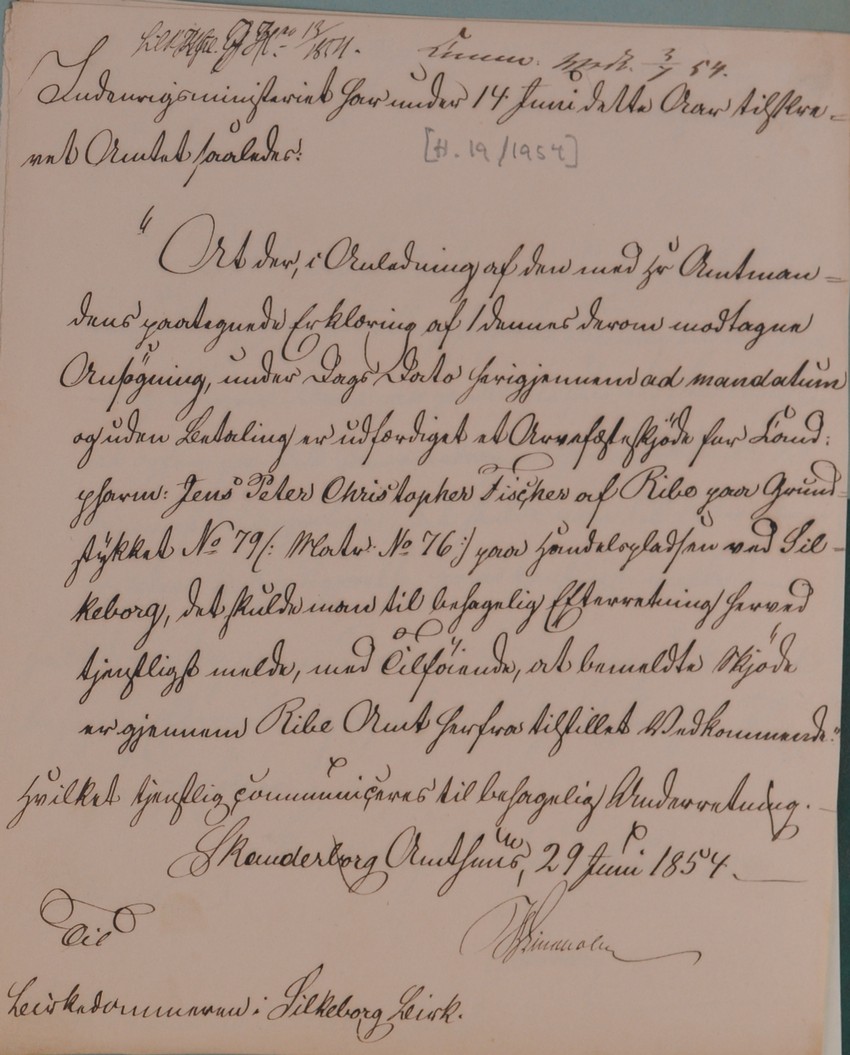 Silk. Hdpl. J. No 13/1854.
Comm. Modt. 3/7 54.
Indenrigsministeriet har under 14 Juni dette Aar tilskre=
vet Amtet saaledes:
[H. 19/1954]
"At der, i Anledning af den med Hr Amtman=
dens paategnede Erklæring af / dennes derom modtagne
Ansögning, under Dags Dato herigjennem ad mandatum
og uden Betaling er udfærdiget et Arvefæsteskjöde for Cand:
pharm: Jens Peter Christopher Fischer af Ribe paa Grund=
stykket No 79 (: Matr: No 76 :) paa Handelspladsen ved Sil=
keborg, det skulde man til behagelig Efterretning herved
tjenstligst melde, med Tilföiende, at bemeldte Skjöde
er gjennem Ribe Amt herfra tilstillet Vedkommende."
Hvilket tjenstlig communiceres til behagelig Underretning.
Skanderborg Amthuus, 29 Juni 1854.
Til
Birkedommeren i Silkeborg Birk.